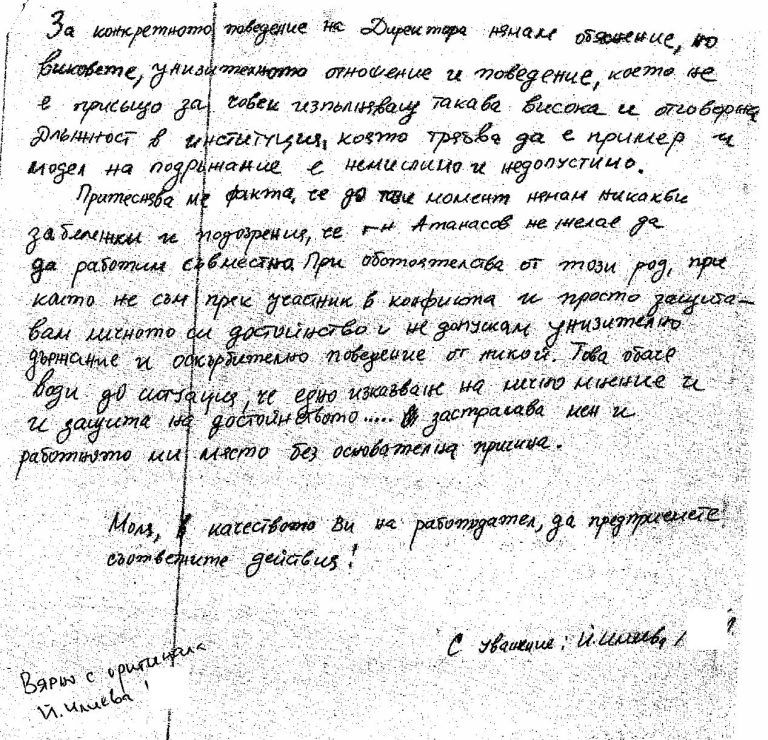 За конкретното поведение на Директора нямам обяснение, но
виковете, унизителното отношение и поведение, което не
е присъщо за човек изпълняващ такава висока и отговорна
длъжност в институция, която трябва да е пример и
модел на подръжание е немислимо и недопустимо.
Притеснява ме факта, че до този момент нямам никакви
забележки и подозрения, че г-н Атанасов не желае да
да работим съвместно. При обстоятелства от този род, при
които не съм пряк участник в конфликта и просто защита-
вам личното си достойнство и не допускам унизително
държание и оскърбително поведение от никой. Това обаче
води до ситуация, че едно изказване на лично мнение и
и защита на достойнството..... застрашава мен и
работното ми място без основателна причина.
Моля, в качеството Ви на работодател, да предприемете
съответните действия!
С уважение: Й. Илиева /
Вярно с оригинала
Й. Илиева!